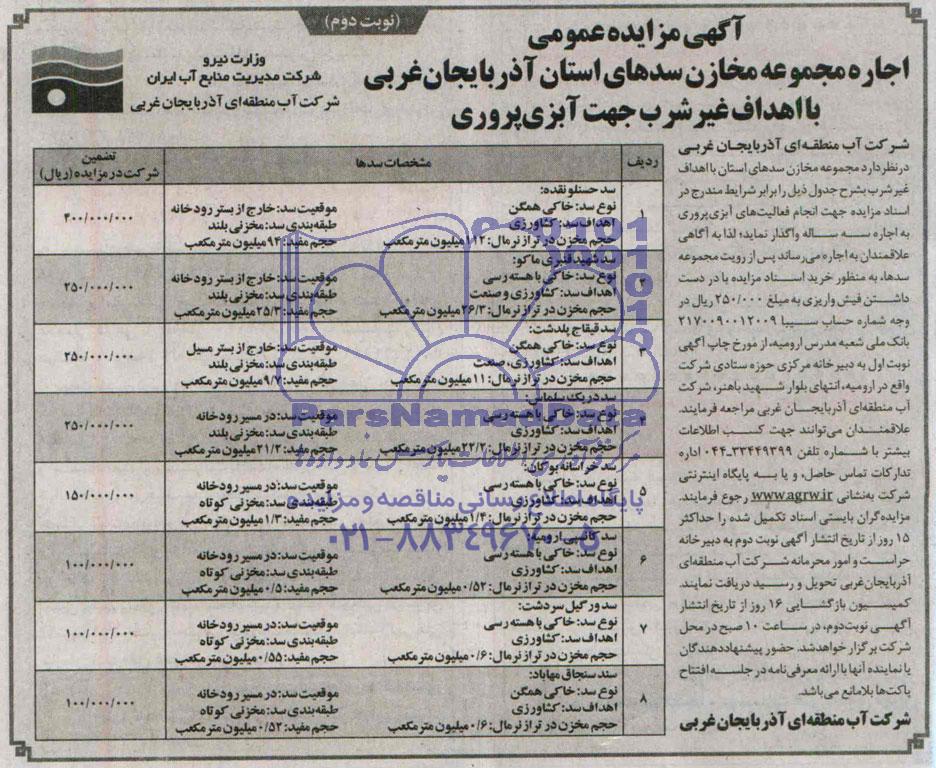 (نوبت دوم)
آگهی مزایده عمومی
اجاره مجموعه مخازن سدهای استان آذربایجان غربی
با اهداف غیر شرب جهت آبزی پروری
وزارت نیرو
شرکت مدیریت منابع آب ایران
شرکت آب منطقه‌ای آذربایجان غربی
شرکت آب منطقه‌ای آذربایجان غربی
در نظر دارد مجموعه مخازن سدهای استان با اهداف
غیر شرب بشرح جدول ذیل را برابر شرایط مندرج در
اسناد مزایده جهت انجام فعالیت‌های آبزی‌پروری
به اجاره سه ساله واگذار نماید؛ لذا به آگاهی
علاقمندان به اجاره می‌رساند پس از رویت مجموعه
سدها، به منظور خرید اسناد مزایده با در دست
داشتن فیش واریزی به مبلغ ۲۵۰/۰۰۰ ریال در
وجه شماره حساب سیبا ۲۱۷۰۰۹۰۰۱۲۰۰۹
بانک ملی شعبه مدرس ارومیه، از مورخ چاپ آگهی
نوبت اول به دبیرخانه مرکزی حوزه ستادی شرکت
واقع در ارومیه، انتهای بلوار شهید باهنر، شرکت
آب منطقه‌ای آذربایجان غربی مراجعه فرمایند.
علاقمندان می‌توانند جهت کسب اطلاعات
بیشتر با شماره تلفن ۳۳۴۴۹۳۹۹-۰۴۴ اداره
تدارکات تماس حاصل، و یا به پایگاه اینترنتی
شرکت به‌نشانی www.agrw.ir رجوع فرمایند.
مزایده‌گران بایستی اسناد تکمیل شده را حداکثر
۱۵ روز از تاریخ انتشار آگهی نوبت دوم به دبیرخانه
حراست و امور محرمانه شرکت آب منطقه‌ای
آذربایجان‌غربی تحویل و رسید دریافت نمایند.
کمیسیون بازگشایی ۱۶ روز از تاریخ انتشار
آگهی نوبت‌دوم، در ساعت ۱۰ صبح در محل
شرکت برگزار خواهد شد. حضور پیشنهاددهندگان
یا نماینده آنها با ارائه معرفی‌نامه در جلسه افتتاح
پاکت‌ها بلامانع می‌باشد.
شرکت آب منطقه‌ای آذربایجان غربی
ردیف مشخصات سدها تضمین شرکت در مزایده (ریال)
۱ سد حسنلو نقده: ۴۰۰/۰۰۰/۰۰۰
نوع سد: خاکی همگن موقعیت سد: خارج از بستر رودخانه
اهداف سد: کشاورزی طبقه‌بندی سد: مخزنی بلند
حجم مخزن در تراز نرمال: ۱۱۲ میلیون مترمکعب حجم مفید: ۹۴ میلیون مترمکعب
۲ سد شهید قنبری ماکو: ۲۵۰/۰۰۰/۰۰۰
نوع سد: خاکی با هسته رسی موقعیت سد: خارج از بستر رودخانه
اهداف سد: کشاورزی و صنعت طبقه‌بندی سد: مخزنی بلند
حجم مخزن در تراز نرمال: ۲۶/۳ میلیون مترمکعب حجم مفید: ۲۵/۳ میلیون مترمکعب
۳ سد قیقاج پلدشت: ۲۵۰/۰۰۰/۰۰۰
نوع سد: خاکی همگن موقعیت سد: خارج از بستر مسیل
اهداف سد: کشاورزی، صنعت طبقه‌بندی سد: مخزنی بلند
حجم مخزن در تراز نرمال: ۱۱ میلیون مترمکعب حجم مفید: ۹/۷ میلیون مترمکعب
سد دریک سلماس: ۲۵۰/۰۰۰/۰۰۰
نوع سد: خاکی با هسته رسی موقعیت سد: در مسیر رودخانه
اهداف سد: کشاورزی طبقه‌بندی سد: مخزنی بلند
حجم مخزن در تراز نرمال: ۲۲/۲ میلیون مترمکعب حجم مفید: ۲۱/۲ میلیون مترمکعب
۵ سد خراسانه بوکان: ۱۵۰/۰۰۰/۰۰۰
نوع سد: خاکی با هسته رسی موقعیت سد: در مسیر رودخانه
اهداف سد: کشاورزی طبقه‌بندی سد: مخزنی کوتاه
حجم مخزن در تراز نرمال: ۱/۴ میلیون مترمکعب حجم مفید: ۱/۳ میلیون مترمکعب
۶ سد کانسپی ارومیه: ۱۰۰/۰۰۰/۰۰۰
نوع سد: خاکی با هسته رسی موقعیت سد: در مسیر رودخانه
اهداف سد: کشاورزی طبقه‌بندی سد: مخزنی کوتاه
حجم مخزن در تراز نرمال: ۰/۵۲ میلیون مترمکعب حجم مفید: ۰/۵ میلیون مترمکعب
۷ سد ورگیل سردشت: ۱۰۰/۰۰۰/۰۰۰
نوع سد: خاکی با هسته رسی موقعیت سد: در مسیر رودخانه
اهداف سد: کشاورزی طبقه‌بندی سد: مخزنی کوتاه
حجم مخزن در تراز نرمال: ۰/۶ میلیون مترمکعب حجم مفید: ۰/۵۵ میلیون مترمکعب
۸ سند سنجاق مهاباد: ۱۰۰/۰۰۰/۰۰۰
نوع سد: خاکی همگن موقعیت سد: در مسیر رودخانه
اهداف سد: کشاورزی طبقه‌بندی سد: مخزنی کوتاه
حجم مخزن در تراز نرمال: ۰/۶ میلیون مترمکعب حجم مفید: ۰/۵۲ میلیون مترمکعب
ParsNamadData
پایگاه اطلاع رسانی مناقصه و مزایده
۰۲۱-۸۸۳۴۹۶۷۰-۵